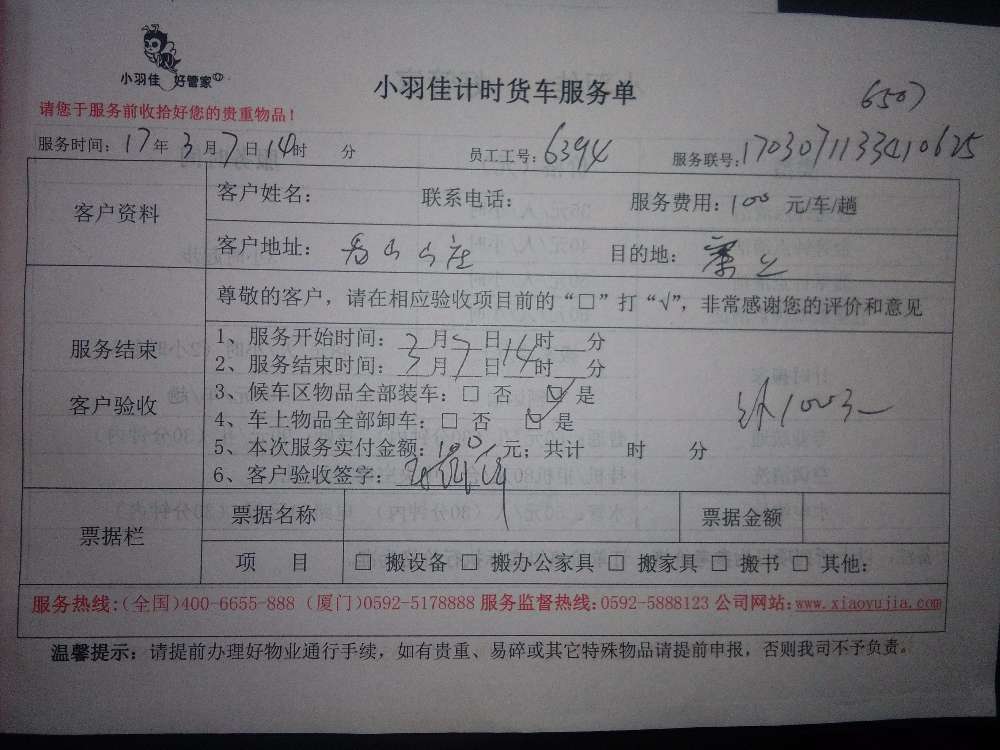 小羽佳 好管家
小羽佳计时货车服务单
6507
请您于服务前收拾好您的贵重物品！
服务时间：17年3月7日14时 分 员工工号：6394 服务联号：1703071133410625
客户资料
客户姓名： 联系电话： 服务费用：100 元/车/趟
客户地址： 山庄 目的地：
尊敬的客户，请在相应验收项目前的“□”打“√”，非常感谢您的评价和意见
服务结束
客户验收
1、服务开始时间：3月7日14时 分
2、服务结束时间： 月 日 时 分
3、候车区物品全部装车：□ 否 ☑ 是
4、车上物品全部卸车：□ 否 ☑ 是
5、本次服务实付金额：100元；共计 时 分
6、客户验收签字：
100元
票据栏
票据名称 票据金额
项 目 □ 搬设备 □ 搬办公家具 □ 搬家具 □ 搬书 □ 其他：
服务热线：（全国）400-6655-888 （厦门）0592-5178888 服务监督热线：0592-5888123 公司网站：www.xiaoyujia.com
温馨提示：请提前办理好物业通行手续，如有贵重、易碎或其它特殊物品请提前申报，否则我司不予负责。